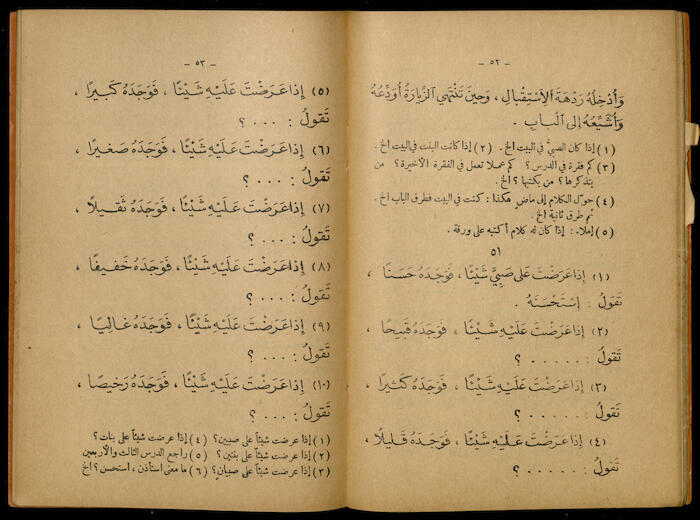 - ٥٢ -
وَأُدْخِلُهُ رَدْهَةَ الِاسْتِقْبَالِ ، وَحِينَ تَنْتَهِي الزِّيَارَةُ أُوَدِّعُهُ
وَأُشَيِّعُهُ إِلَى الْبَابِ .
(١) إذا كان الصبيّ في البيت الخ . (٢) إذا كانت البنت في البيت الخ .
(٣) كم فقرة في الدرس ؟ كم عملا تعمل في الفقرة الأخيرة ؟ من
يتذكرها ؟ من يكتبها ؟ الخ .
(٤) حوّل الكلام إلى ماض هكذا : كنت في البيت فطرق الباب الخ .
ثم طرق ثانية الخ .
(٥) إملاء : إذا كان له كلام أكتبه على ورقة .
٥١
(١) إِذَا عَرَضْتَ عَلَى صَبِيٍّ شَيْئًا ، فَوَجَدَهُ حَسَنًا ،
تَقُولُ : اِسْتَحْسَنَهُ .
(٢) إِذَا عَرَضْتَ عَلَيْهِ شَيْئًا ، فَوَجَدَهُ قَبِيحًا ،
تَقُولُ : . . . . . ؟
(٣) إِذَا عَرَضْتَ عَلَيْهِ شَيْئًا ، فَوَجَدَهُ كَثِيرًا ،
تَقُولُ : . . . . . . ؟
(٤) إِذَا عَرَضْتَ عَلَيْهِ شَيْئًا ، فَوَجَدَهُ قَلِيلًا ،
تَقُولُ : . . . . . ؟
- ٥٣ -
(٥) إِذَا عَرَضْتَ عَلَيْهِ شَيْئًا ، فَوَجَدَهُ كَبِيرًا ،
تَقُولُ : . . . . ؟
(٦) إِذَا عَرَضْتَ عَلَيْهِ شَيْئًا ، فَوَجَدَهُ صَغِيرًا ،
تَقُولُ : . . . ؟
(٧) إِذَا عَرَضْتَ عَلَيْهِ شَيْئًا ، فَوَجَدَهُ ثَقِيلًا ،
تَقُولُ : . . . ؟
(٨) إِذَا عَرَضْتَ عَلَيْهِ شَيْئًا ، فَوَجَدَهُ خَفِيفًا ،
تَقُولُ : . . . ؟
(٩) إِذَا عَرَضْتَ عَلَيْهِ شَيْئًا ، فَوَجَدَهُ غَالِيًا ،
تَقُولُ : . . . ؟
(١٠) إِذَا عَرَضْتَ عَلَيْهِ شَيْئًا ، فَوَجَدَهُ رَخِيصًا ،
تَقُولُ : . . . ؟
(١) إذا عرضت شيئاً على صبيين ؟ (٤) إذا عرضت شيئاً على بنات ؟
(٢) إذا عرضت شيئاً على بنتين ؟ (٥) راجع الدرس الثالث والأربعين
(٣) إذا عرضت شيئاً على صبيان ؟ (٦) ما معنى استأذن ، استحسن ؟ الخ